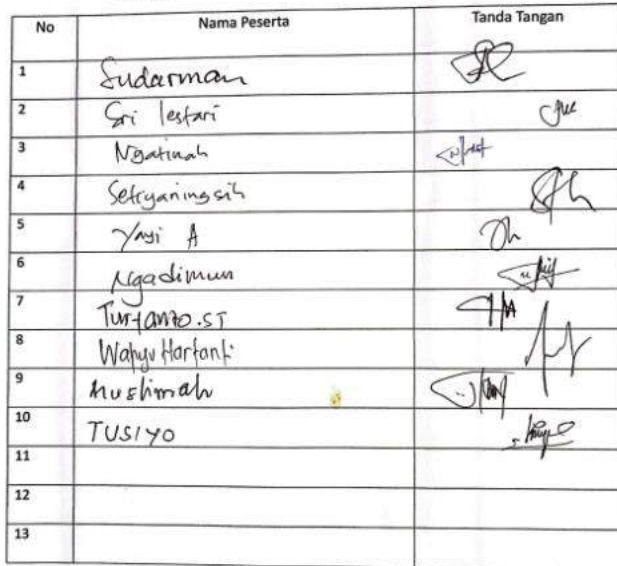 No Nama Peserta Tanda Tangan
1 Sudarman
2 Sri lestari
3 Ngatinah
4 Setiyaningsih
5 Yayi A
6 Ngadimun
7 Turyanto.ST
8 Wahyu Hartanti
9 Muslimah
10 TUSIYO
11
12
13